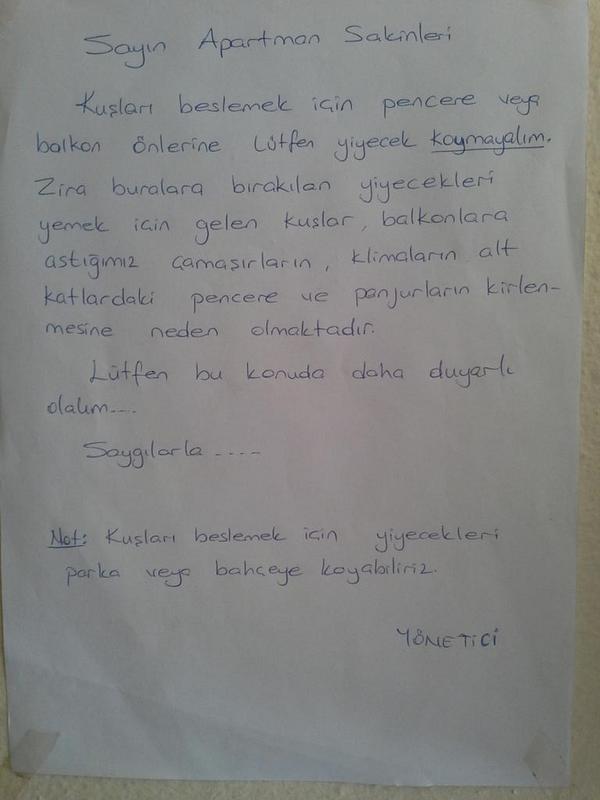 Sayın Apartman Sakinleri
Kuşları beslemek için pencere veya
balkon önlerine Lütfen yiyecek koymayalım.
Zira buralara bırakılan yiyecekleri
yemek için gelen kuşlar, balkonlara
astığımız çamaşırların, klimaların alt
katlardaki pencere ve panjurların kirlen-
mesine neden olmaktadır.
Lütfen bu konuda daha duyarlı
olalım....
Saygılarla ....
Not: Kuşları beslemek için yiyecekleri
parka veya bahçeye koyabiliriz.
YÖNETİCİ